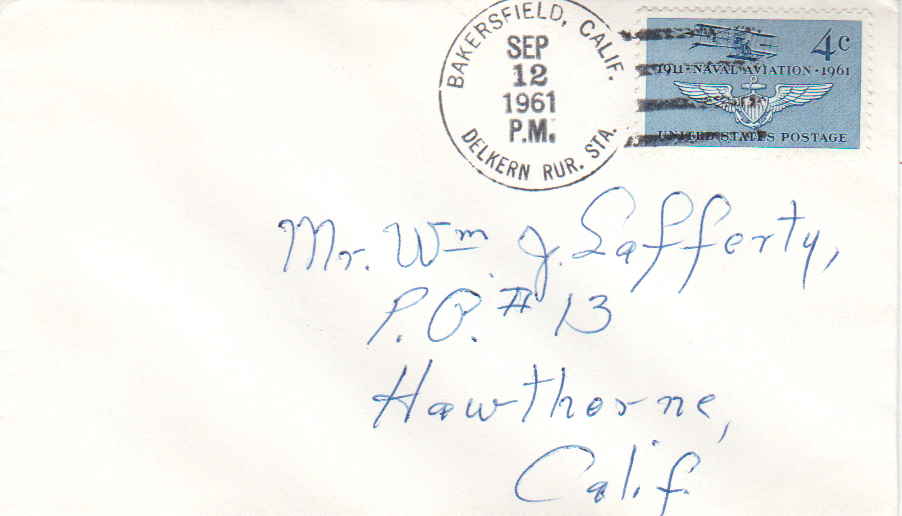 BAKERSFIELD, CALIF.
SEP
12
1961
P.M.
DELKERN RUR. STA.
4c
1911·NAVAL AVIATION·1961
UNITED STATES POSTAGE
Mr. Wm. J. Lafferty,
P.O. # 13
Hawthorne,
Calif.